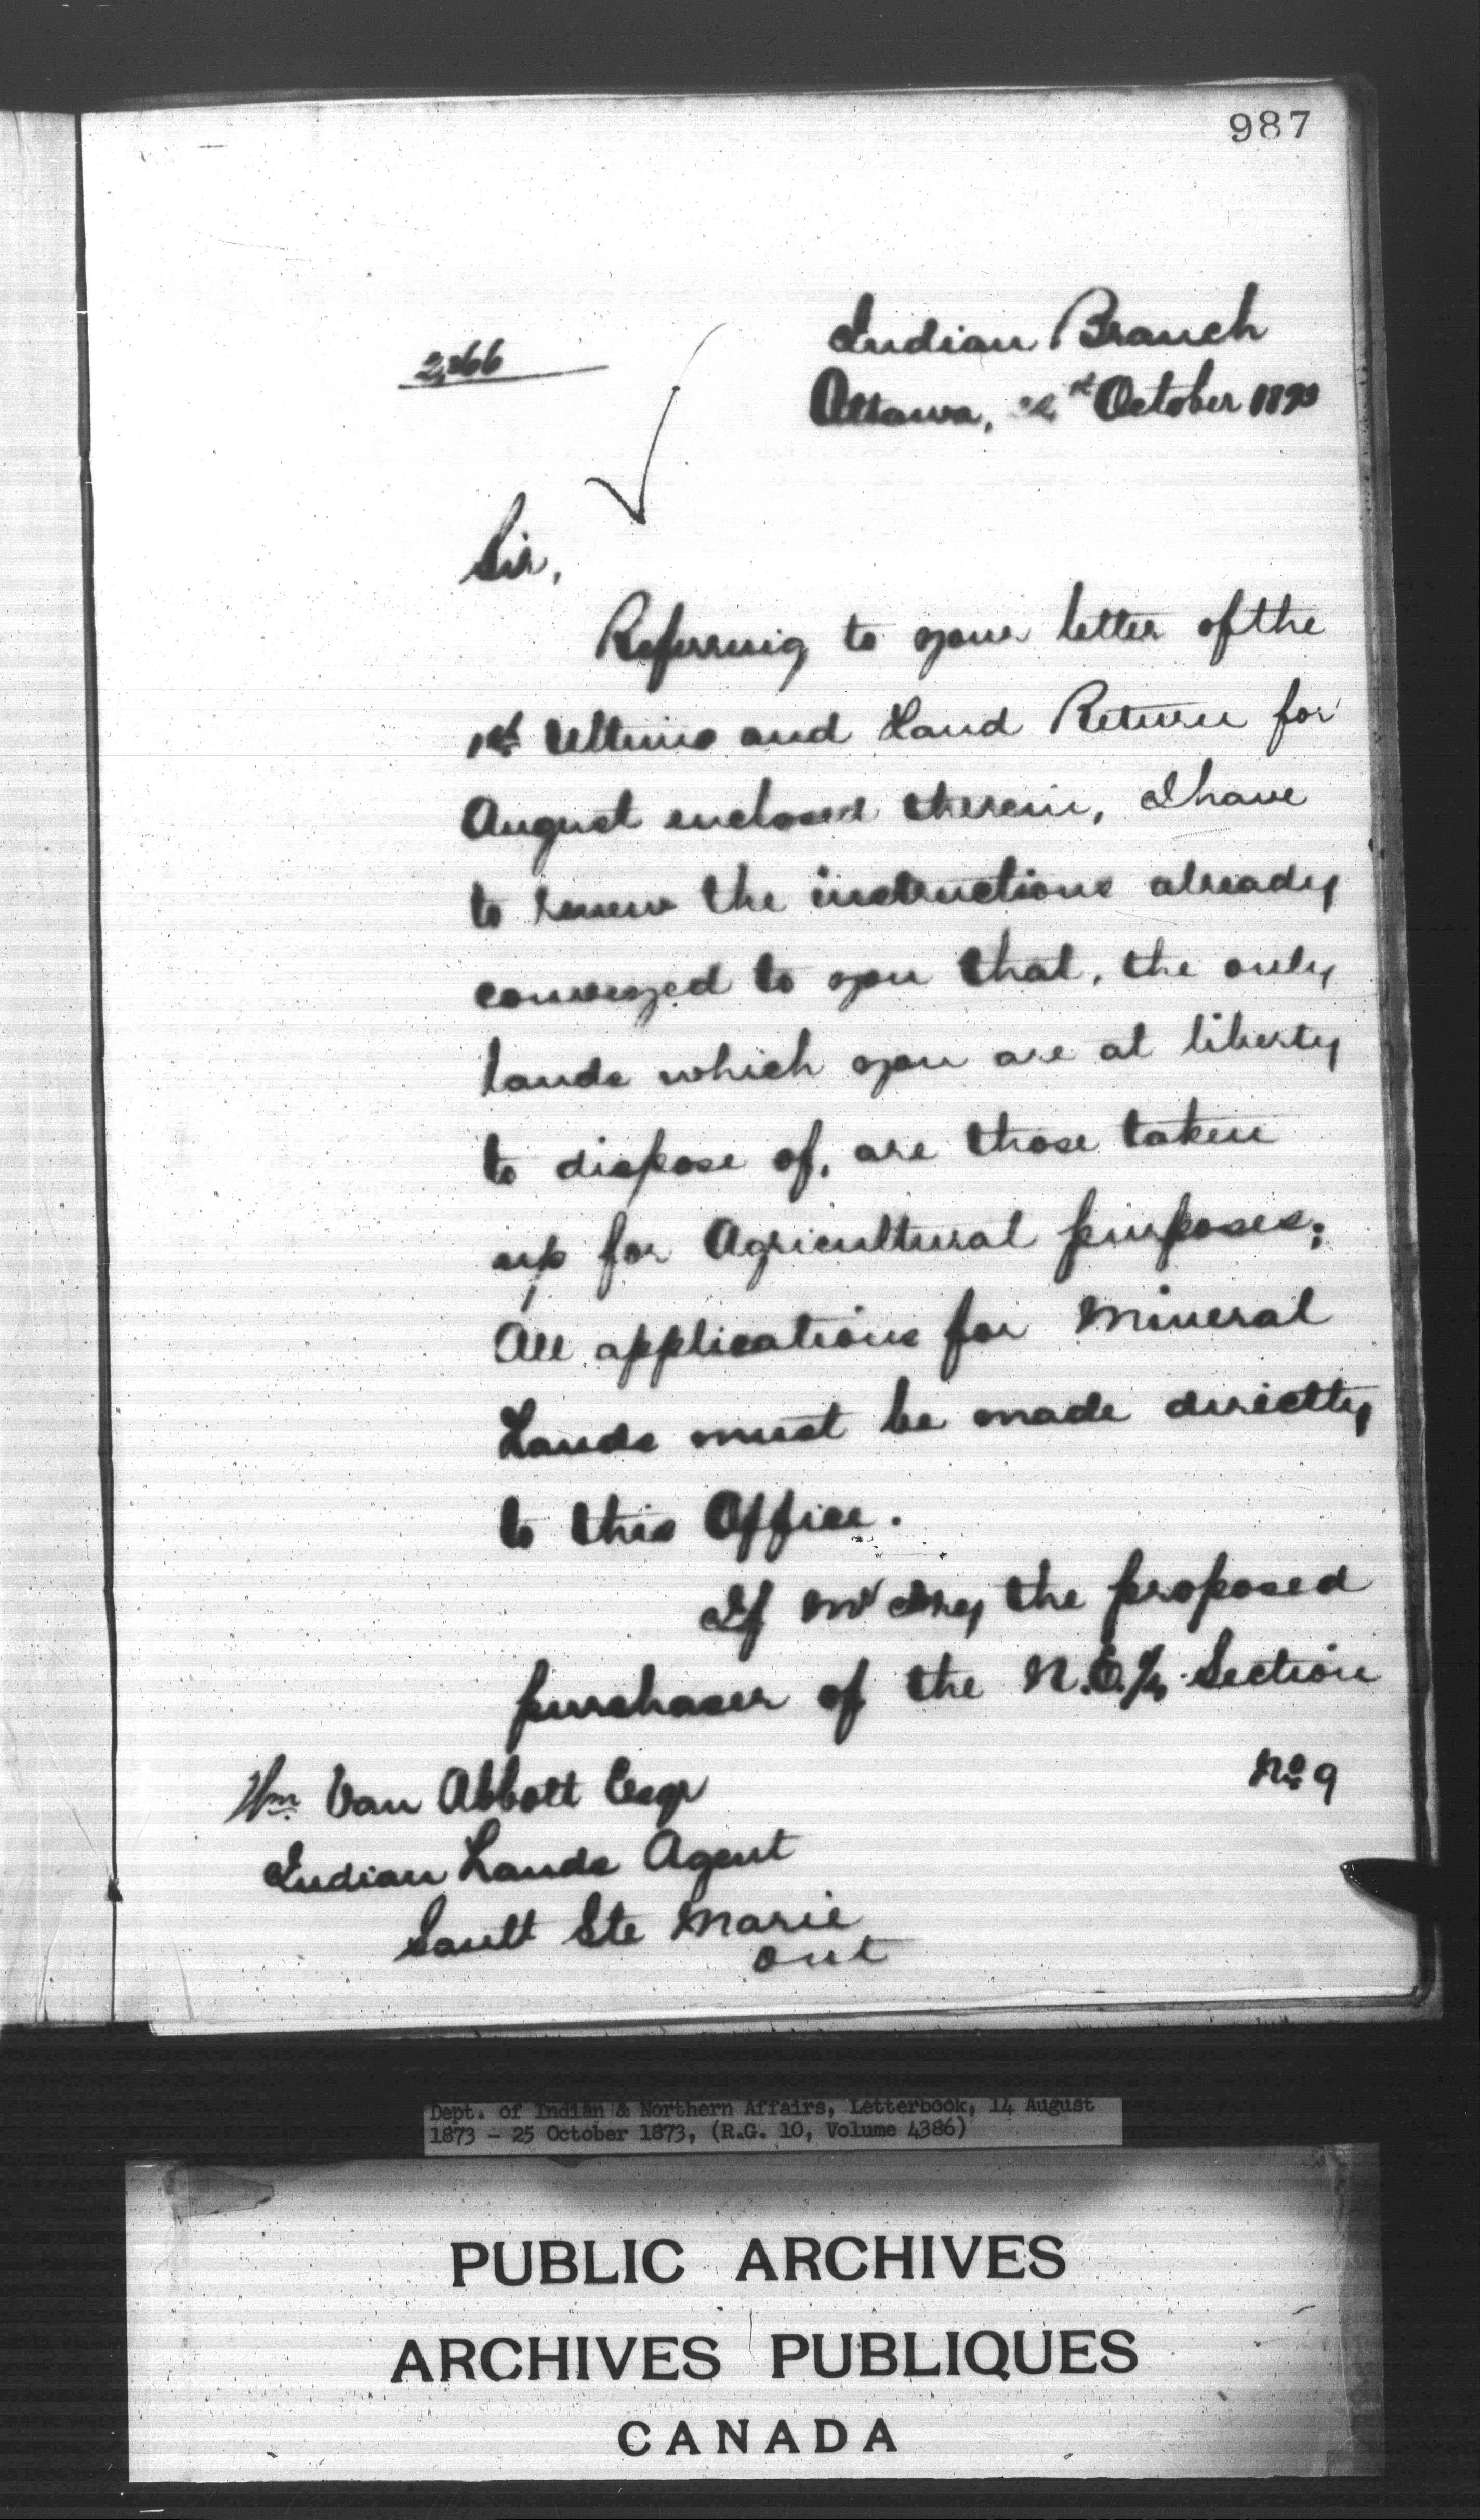 987
Indian Branch
Ottawa, October 1873
Sir,
Referring to your letter of the
1st Ultimo and Land Return for
August enclosed therein, I have
to renew the instructions already
conveyed to you that, the only
lands which you are at liberty
to dispose of, are those taken
up for Agricultural purposes;
All applications for Mineral
Lands must be made directly
to this Office.
If Mr the proposed
purchaser of the N.E. 1/4 Section
No 9
Wm Van Abbott Esqr
Indian Lands Agent
Sault Ste Marie
Ont
Dept. of Indian & Northern Affairs, Letterbook, 14 August
1873 - 25 October 1873, (R.G. 10, Volume 4386)
PUBLIC ARCHIVES
ARCHIVES PUBLIQUES
CANADA